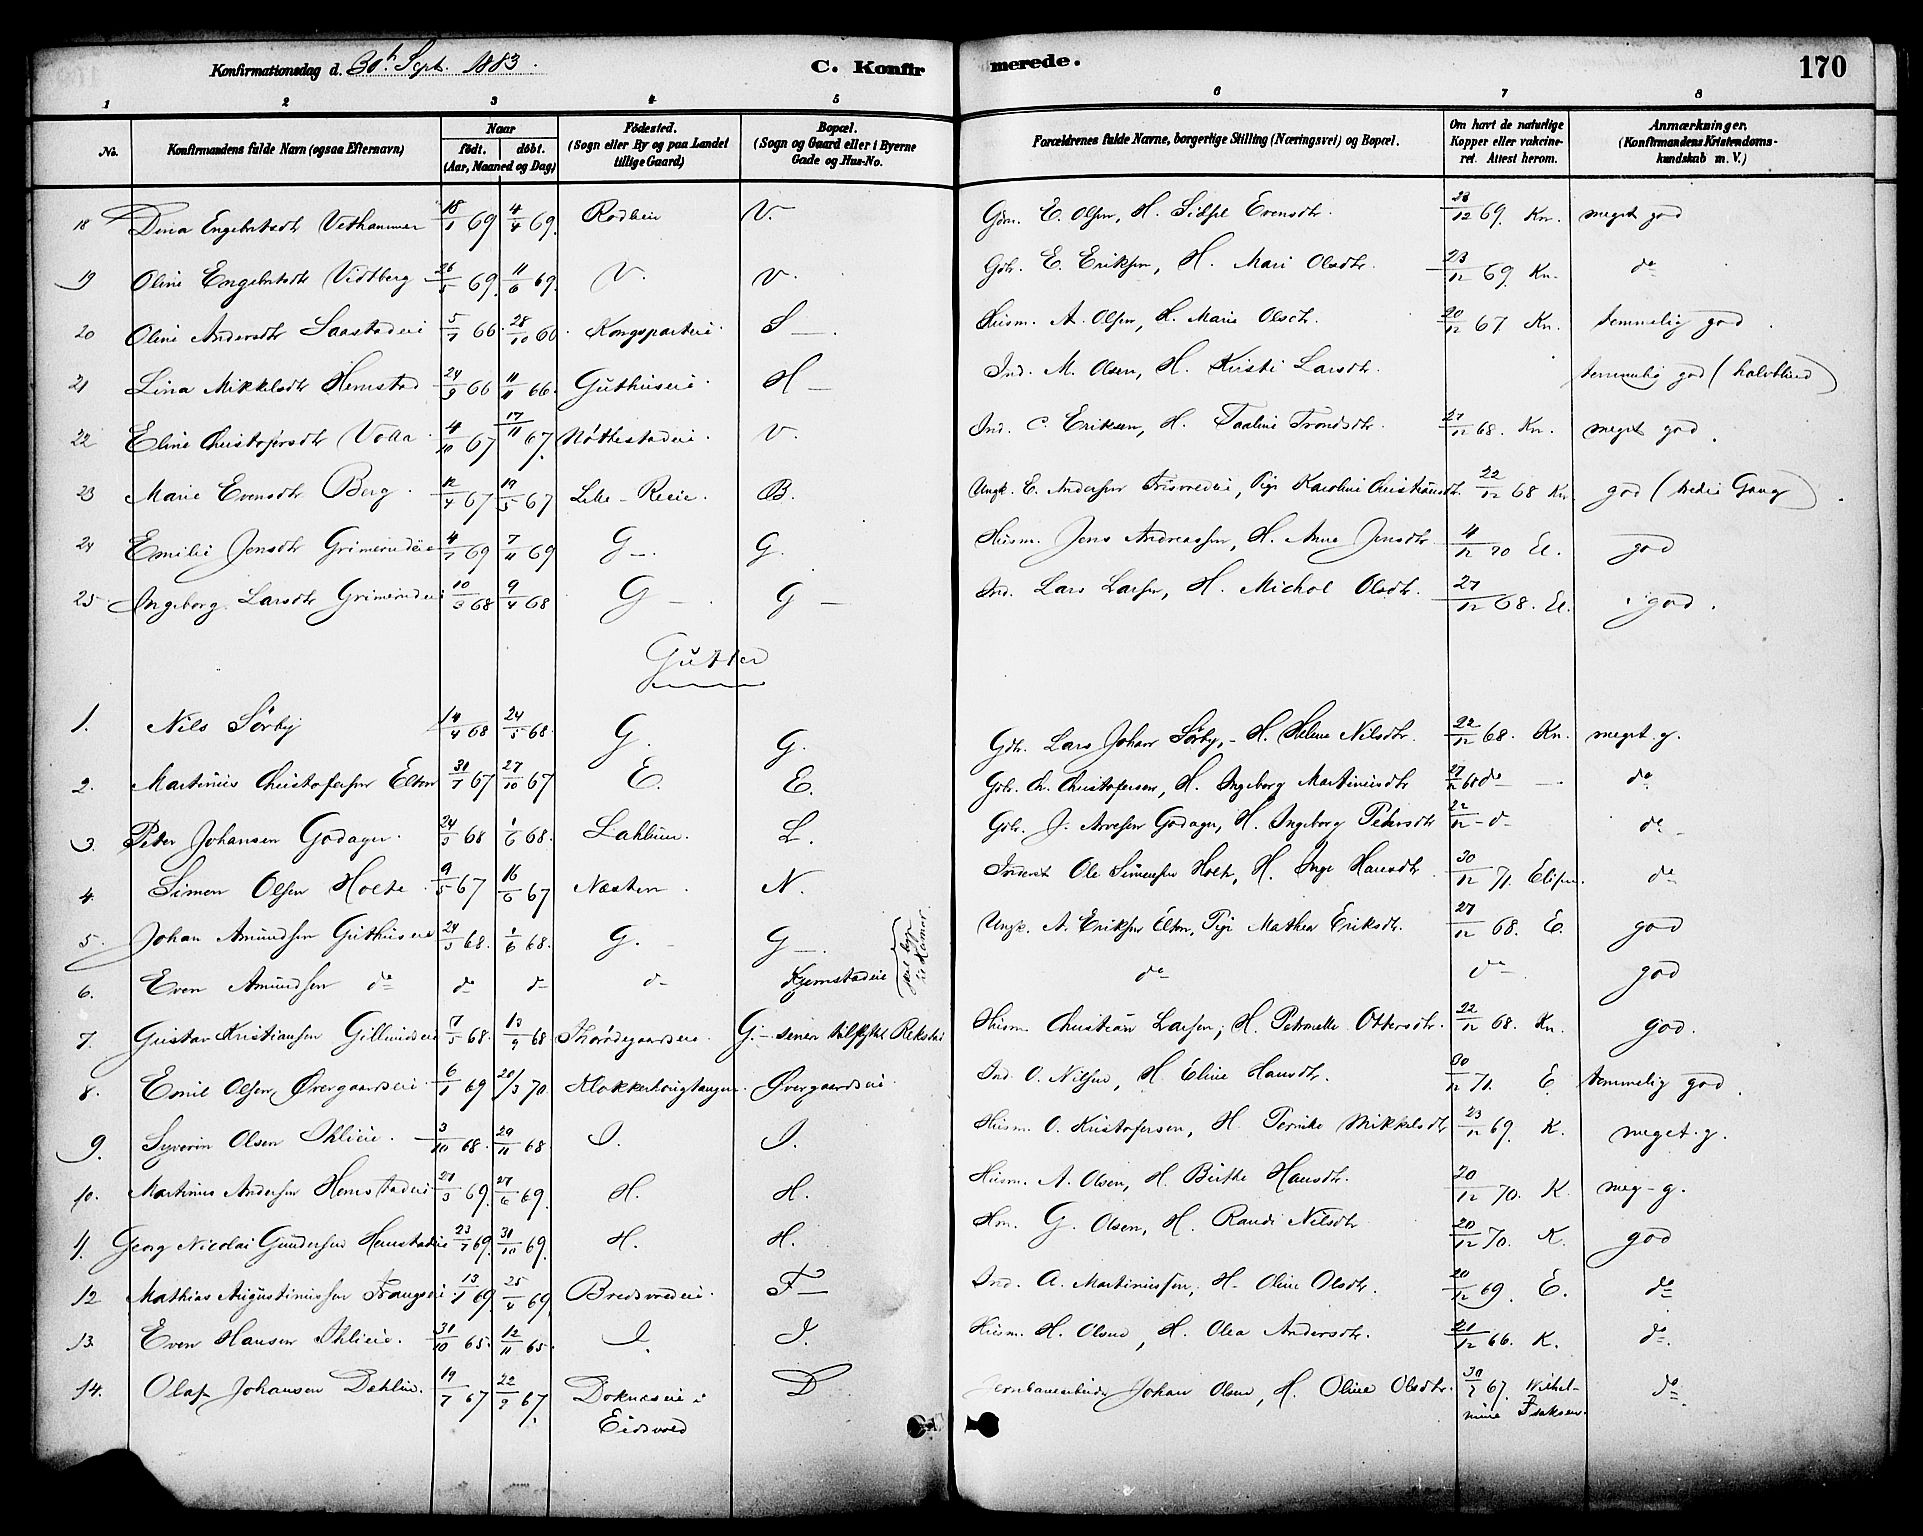 Konfirmationsdag d. 30te Sept. 1883.
C. Konfirmerede.
170
1 2 3 4 5 6 7 8
No. Konfirmandens fulde Navn (ogsaa Efternavn) Naar födt. döbt. (Aar, Maaned og Dag) Födested. (Sogn eller By og paa Landet tillige Gaard) Bopæl. (Sogn og Gaard eller i Byerne Gade og Hus-No. Forældrenes fulde Navne, borgerlige Stilling (Næringsvei) og Bopæl. Om havt de naturlige Kopper eller vakcineret. Attest herom. Anmærkninger. (Konfirmandens Kristendomskundskab m. V.)
18 Dina Engebretsdtr Vethammer 18/1 69 4/4 69. V. Gdm. E. Olsen, H. Sidsel Evensdtr. 28/12 69. Kn. meget god
19 Oline Engebretsdtr Vidtberg 26/5 69. 11/6 69. V. V. Gdr. E. Eriksen, H. Mari Olsdtr. 23/12 69 Kn. do
20 Oline Andersdtr Saastadeie 5/7 66. 28/10 66. Kongsparteie. S— Husm. A. Olsen, H. Marie Olsdtr. 20/12 67 Kn. temmelig god.
21 Lina Mikkelsdtr Hemstad 24/9 66 11/11 66. Guthuseie. H— Ind. M. Olsen, H. Kristi Larsdtr. temmelig god (halvblind)
22 Eline Christofersdtr Volla 4/10 67 17/11 67. Nøkkestadeie. V. Ind. C. Eriksen, H. Taaline Trondsdtr. 27/12 68. Kn. meget god.
23 Marie Evensdtr Berg. 12/4 67 19/5 67 Lille-Reeie. B. Ungk. E. Andersen, Pige Karoline Christiansdtr. 22/12 68 Kn. god (tredie Gang)
24 Emilie Jensdtr Grimerudeie 4/7 69 7/11 69 G—. G. Husm. Jens Andreassen, H. Anne Jensdtr 4/12 70 El. god
25 Ingeborg Larsdtr Grimerudeie 10/3 68 9/4 68 G—. G— Ind. Lars Larsen, H. Michol Olsdtr. 27/12 68. El. god.
Gutter
1. Nils Sörby 14/4 68 24/5 68. G. G. Gdr. Lars Johan Sörby, - H. Helene Nilsdtr. 22/12 68. Kn. meget g.
2. Martinius Christofersen Elton 31/7 67 27/10 67 E. E. Gdr. Ch. Christofersen, H. Ingeborg Martiniusdtr 27/12 68 do — do
3. Peter Johansen Godager. 24/3 68 1/6 68. Lahlum. L. Gdr. J. Arvesen Godager, H. Ingeborg Pedersdtr 22/12 - d- do
4. Simen Olsen Holte. 9/5 67 16/6 67 Næsten. N. Inderst Ole Simensen Holt, H. Inge Hansdtr 30/12 71. do
5. Johan Amundsen Guthuseie 24/3 68. 1/6 68. G. G—. Ungk. A. Eriksen Elton, Pige Mathea Eriksdtr. 27/12 68. E. god
6. Even Amundsen do do d- d- Kjemstadeie do do god
7. Gustav Kristiansen Gillundseie 7/5 68. 13/9 68 G. - senere tilflyttet Rekstad Husm. Christian Larsen, H. Petronelle Ottersdtr. 22/12 68. Kn. god.
8. Emil Olsen Øvergaardseie. 6/1 69 20/3 70. Øvergaardseie. Ind. O. Nilsen, H. Eline Hansdtr. 30/12 71. E. temmelig god.
9. Syverin Olsen Ihlieie. 3/10 68. 29/11 68. I. I. Husm. O. Kristofersen, H. Pernike Mikkelsdtr 23/12 69. K. meget g.
10. Martinus Andersen Hemstadeie 27/3 69. 27/6 69. H. H. Husm. A. Olsen, H. Birthe Hansdtr. 20/12 70. K. meg-g.
11. Georg Nicolai Gundersen Hemstadeie 23/7 69. 31/10 69. H. H. Hm. G. Olsen, H. Randi Nilsdtr 20/12 70. K. god
12 Mathias Augustiniussen 13/1 69 25/4 69. Bredvoldeie. F— Ind. A. Martiniussen, H. Oline Olsdtr. 20/12 69. E. do
13. Even Hansen Ihlieie. 31/10 65. 12/11 65. I. I. Husm. H. Olsen, H. Olea Andersdtr. 21/12 66. K. do
14. Olaf Johansen Dæhlin. 19/7 67 22/9 67. Doknæseie i D Jernbanearbeider Johan Olsen, H. Oline Olsdtr. 30/7 67. Wilhel- do
Eidsvold mine Isaksen.